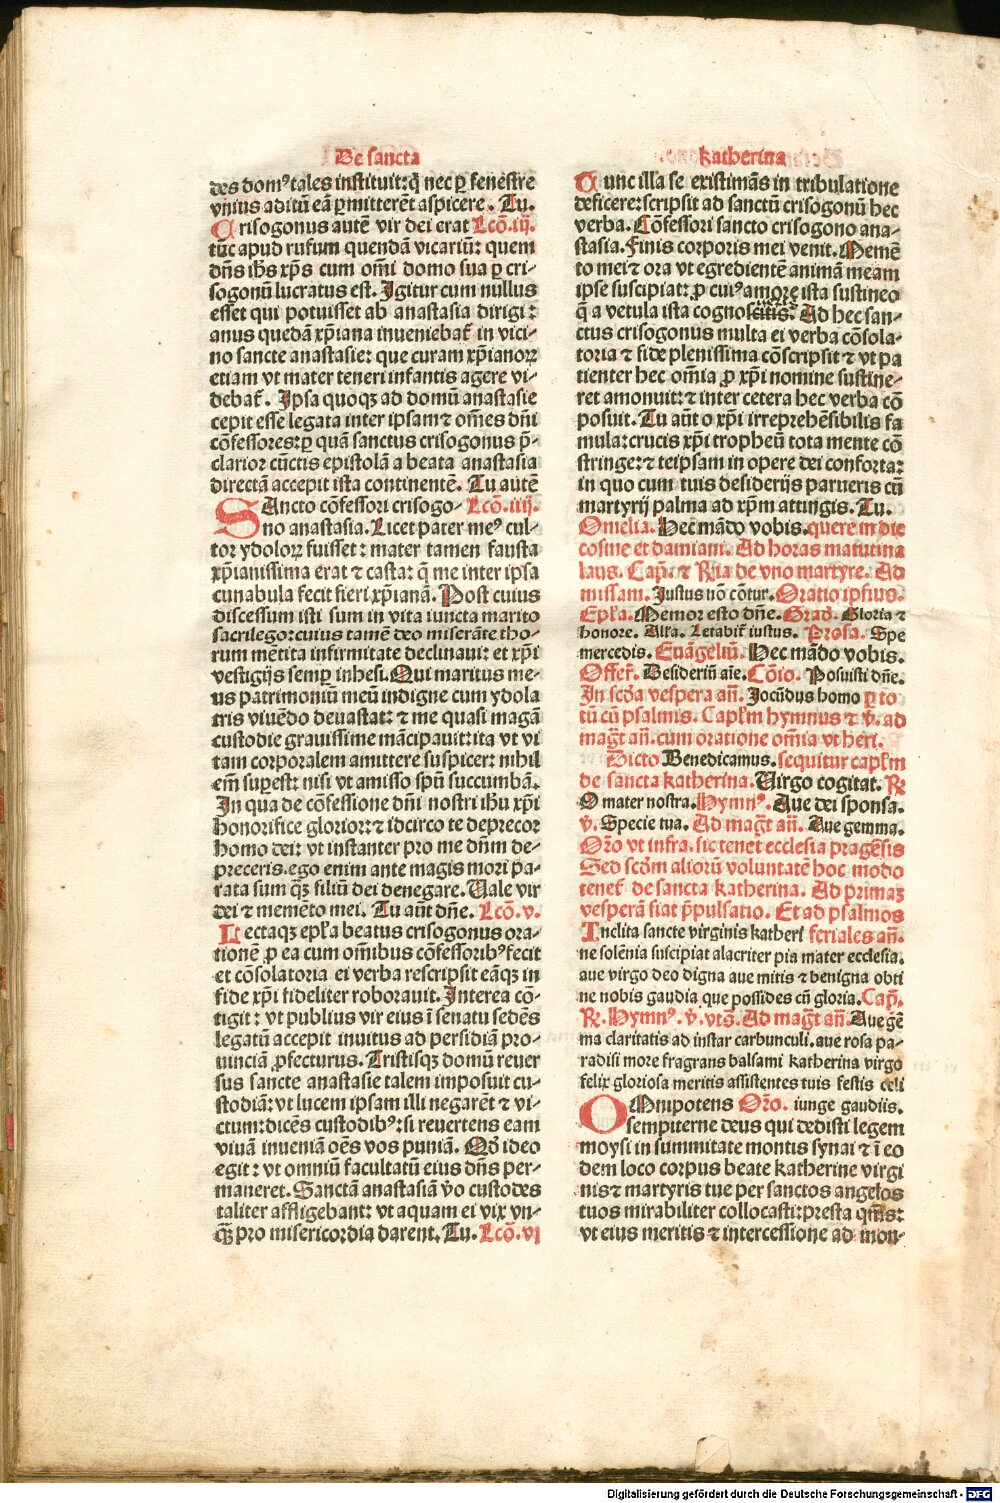 De sancta
des domꝰ tales instituit: q̄ nec ꝑ fenestre
vnius aditū eā ꝑmitterēt aspicere. Tu.
Crisogonus autē vir dei erat Lcō. iij.
tūc apud rufum quendā vicariū: quem
dn̄s ih̄s xp̄s cum om̄i domo sua ꝑ cri-
sogonū lucratus est. Igitur cum nullus
esset qui potuisset ab anastasia dirigi:
anus quedā xp̄iana inueniebat̄ in vici-
no sancte anastasie: que curam xp̄ianoꝝ
etiam vt mater teneri infantis agere vi-
debat̄. Ipsa quoqꝫ ad domū anastasie
cepit esse legata inter ipsam ⁊ om̄es dn̄i
cōfessores: ꝑ quā sanctus crisogonus p̄-
clarior cūctis epistolā a beata anastasia
directā accepit ista continentē. Tu autē
SAncto cōfessori crisogo- Lcō. iiij.
no anastasia. Licet pater meꝰ cul-
tor ydoloꝝ fuisset: mater tamen fausta
xp̄ianissima erat ⁊ casta: q̄ me inter ipsa
cunabula fecit fieri xp̄ianā. Post cuius
discessum isti sum in vita iuncta marito
sacrilego: cuius tamē deo miserāte tho-
rum mētita infirmitate declinaui: et xp̄i
vestigijs semꝑ inhesi. Qui maritus me-
us patrimoniū meū indigne cum ydola
tris viuēdo deuastat: ⁊ me quasi magā
custodie grauissime mācipauit: ita vt vi
tam corporalem amittere suspicer: nihil
em̄ suꝑest: nisi vt amisso spū succumbā.
In qua de cōfessione dn̄i nostri ih̄u xp̄i
honorifice glorior: ⁊ idcirco te deprecor
homo dei: vt instanter pro me dn̄m de-
preceris. ego enim ante magis mori pa-
rata sum qꝫ filiū dei denegare. Vale vir
dei ⁊ memēto mei. Tu aūt dn̄e. Lcō. v.
Lectaqꝫ ep̄la beatus crisogonus ora-
tionē ꝓ ea cum om̄ibus cōfessoribꝰ fecit
et cōsolatoria ei verba rescripsit eāqꝫ in
fide xp̄i fideliter roborauit. Interea cō-
tigit: vt publius vir eius ī senatu sedēs
legatū accepit inuitus ad persidiā pro-
uinciā ꝓfecturus. Tristisqꝫ domū reuer
sus sancte anastasie talem imposuit cu-
stodiā: vt lucem ipsam illi negarēt ⁊ vi-
ctum: dicēs custodibꝰ: si reuertens eam
viuā inueniā oēs vos puniā. Qd̄ ideo
egit: vt omniū facultatū eius dn̄s per-
maneret. Sanctā anastasiā ṽo custodes
taliter affligebant: vt aquam ei vix vn-
qꝫ pro misericordia darent. Tu. Lcō. vj
katherina
Tunc illa se existimās in tribulatione
deficere: scripsit ad sanctū crisogonū hec
verba. Cōfessori sancto crisogono ana-
stasia. Finis corporis mei venit. Memē
to mei ⁊ ora vt egredientē animā meam
ipse suscipiat: ꝓ cuiꝰ amore ista sustineo
q̄ a vetula ista cognoscitis. Ad hec san-
ctus crisogonus multa ei verba cōsola-
toria ⁊ fide plenissima cōscripsit ⁊ vt pa
tienter hec om̄ia ꝓ xp̄i nomine sustine-
ret amonuit: ⁊ inter cetera hec verba cō
posuit. Tu aūt o xp̄i irreprehēsibilis fa
mula: crucis xp̄i tropheū tota mente cō
stringe: ⁊ teipsam in opere dei conforta:
in quo cum tuis desiderijs parueris cū
martyrij palma ad xp̄m attingis. Tu.
Omelia. Hec mādo vobis. quere in die
cosme et damiani. Ad horas matutina
laus. Cap̄. ⁊ Rña de vno martyre. Ad
missam. Justus nō cōtur. Oratio ipsius.
Ep̄la. Memor esto dn̄e. Grad̄. Gloria ⁊
honore. Alľa. Letabit̄ iustus. Prosa. Spe
mercedis. Euāgeliū. Hec mādo vobis.
Offer̄. Desideriū aīe. Cōio. Posuisti dn̄e.
In scd̄a vespera añ. Jocūdus homo ꝑ to
tū cū psalmis. Capľm hymnus ⁊ v̄. ad
maḡt añ. cum oratione om̄ia vt heri.
Dicto Benedicamus. sequitur capľm
de sancta katherina. Virgo cogitat. R̄
O mater nostra. Hymnꝰ. Aue dei sponsa.
v̄. Specie tua. Ad maḡt añ. Aue gemma.
Or̄o vt infra. sic tenet ecclesia pragēsis
Sed scd̄m alioꝝ voluntatē hoc modo
tenet̄ de sancta katherina. Ad primas
vesperā fiat p̄pulsatio. Et ad psalmos
Inclita sancte virginis katheri feriales añ.
ne solēnia suscipiat alacriter pia mater ecclesia.
aue virgo deo digna aue mitis ⁊ benigna obti
ne nobis gaudia que possides cū gloria. Cap̄.
R̄. Hymnꝰ. v̄. vts̄. Ad maḡt añ. Aue gē
ma claritatis ad instar carbunculi. aue rosa pa-
radisi more fragrans balsami katherina virgo
felix gloriosa meritis assistentes tuis festis celi
OMnipotens Or̄o. iunge gaudiis.
sempiterne deus qui dedisti legem
moysi in summitate montis synai ⁊ ī eo
dem loco corpus beate katherine virgi
nis ⁊ martyris tue per sanctos angelos
tuos mirabiliter collocasti: presta qm̄s:
vt eius meritis ⁊ intercessione ad mon-
Digitalisierung gefördert durch die Deutsche Forschungsgemeinschaft - DFG